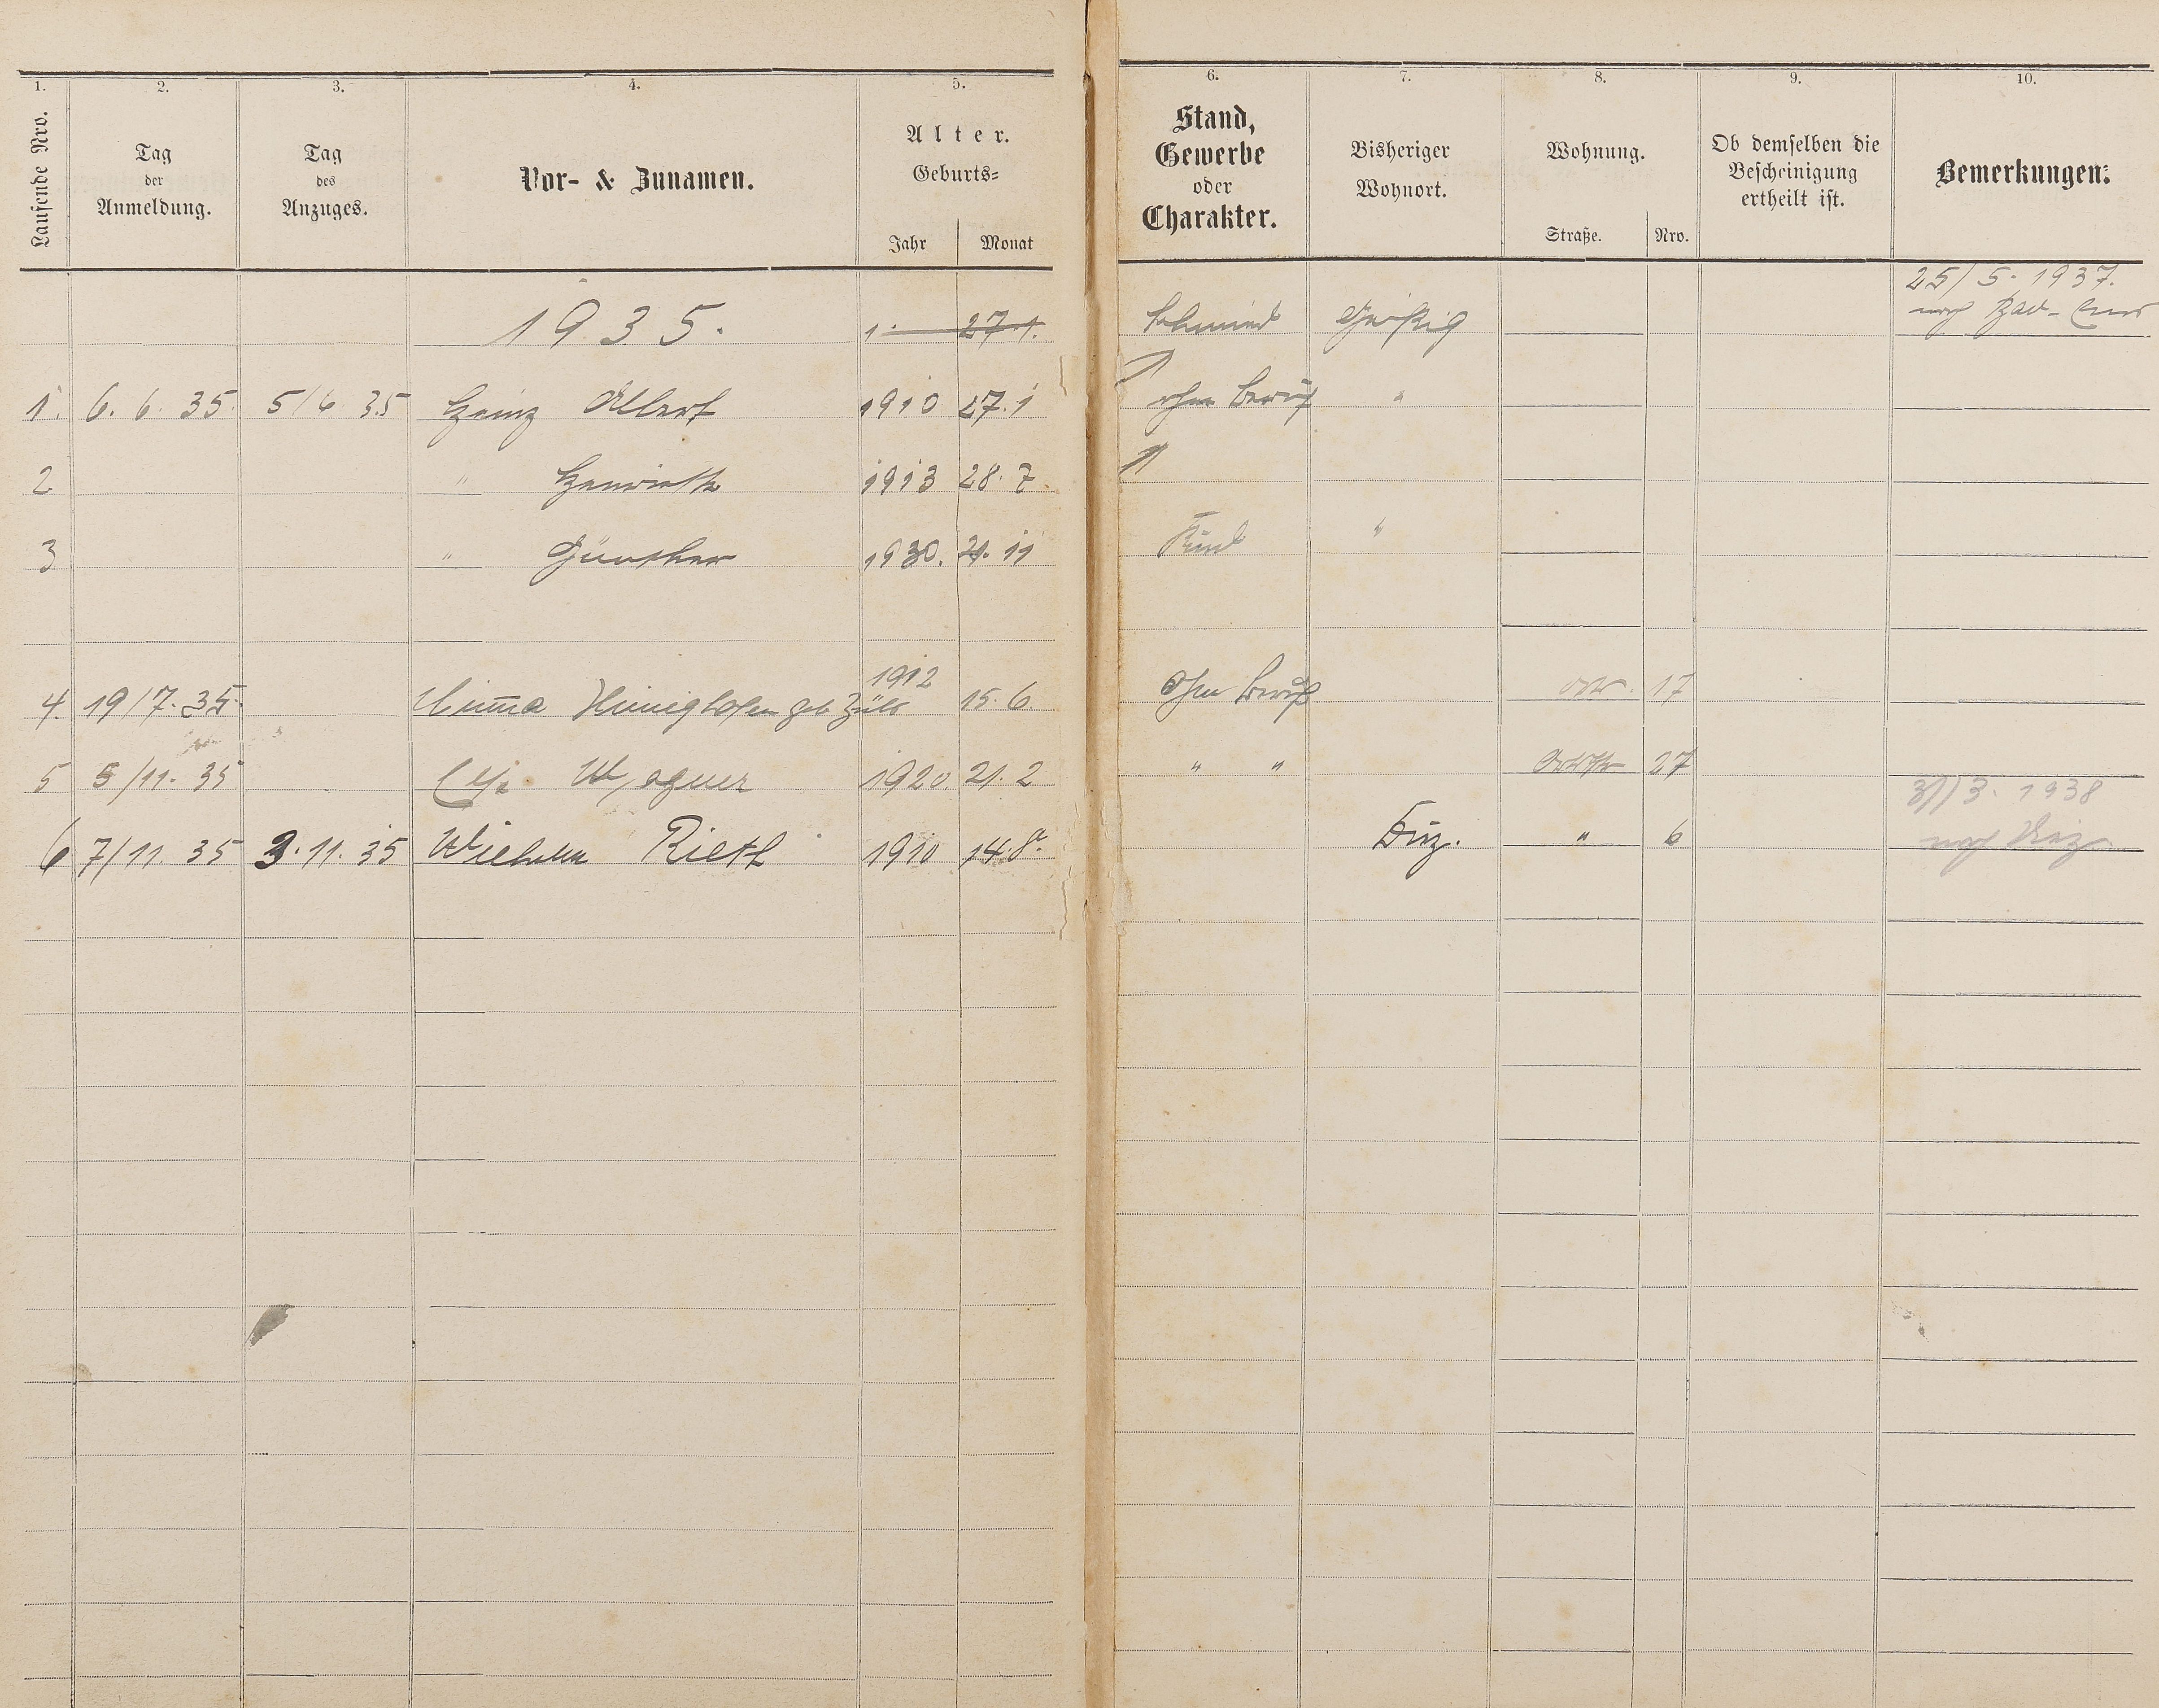 1. 2. 3. 4. 5. 6. 7. 8. 9. 10.
Laufende Nro.
Tag der Anmeldung.
Tag des Anzuges.
Vor- & Zunamen.
Alter.
Geburts=
Jahr Monat
Stand, Gewerbe oder Charakter.
Bisheriger Wohnort.
Wohnung.
Straße. Nro.
Ob demselben die Bescheinigung ertheilt ist.
Bemerkungen:
25/5. 1937.
1935. 1. 27.1. Schmied nach Bad-Ems
1. 6. 6. 35. 5/6 35 Heinz Albert 1910 27.1 ohne Beruf "
2 " Henriette 1913 28.7.
3 " Günther 1930. 21. 11 Kind "
4. 19/7. 35. geb 1912 15.6. Ohne Beruf 17
5 5/11. 35 Wagner 1920. 21. 2 " " 27
31/3. 1938
6 7/11. 35 3. 11. 35 Wilhelm Rieth 1910 14.8. " 6 nach